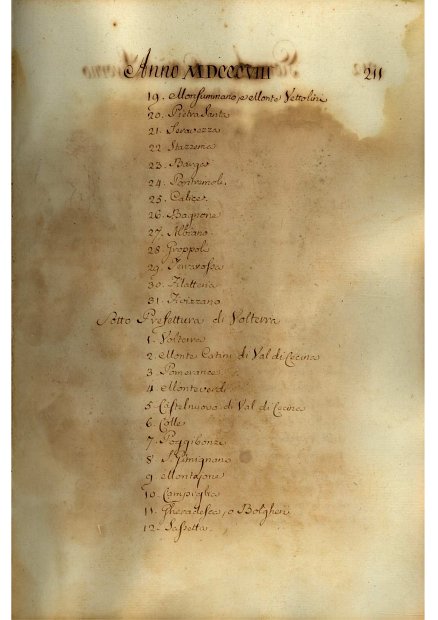 Anno MDCCCVIII 211
19. Monsummano, e Monte Vettolini
20. Pietra Santa
21. Seravezza
22. Stazzema
23. Barga
24. Pontremoli.
25. Calice.
26. Bagnone
27. Albiano.
28. Groppoli
29. Terrarossa
30. Filatteria
31. Fivizzano
Sotto Prefettura di Volterra
1. Volterra
2. Monte Catini di Val di Cecina
3. Pomerance
4. Monteverdi
5. Castelnuovo di Val di Cecina
6. Colle
7. Poggibonzi
8. S. Gimignano
9. Montajone
10. Campiglia
11. Gheradesca, o Bolgheri
12. Sassetta.